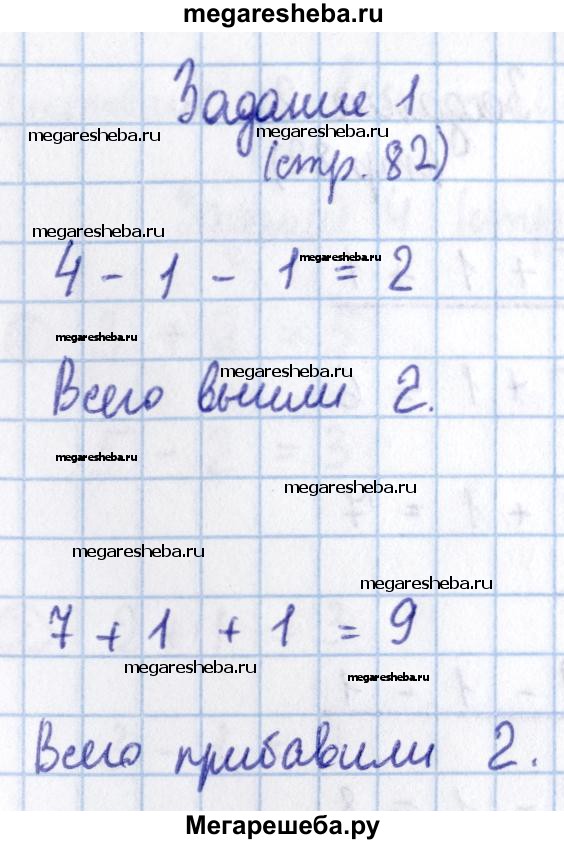 megaresheba.ru
Задание 1
megaresheba.ru megaresheba.ru
(стр. 82)
megaresheba.ru
megaresheba.ru
4 - 1 - 1 = 2
megaresheba.ru
megaresheba.ru
Всего вычли 2.
megaresheba.ru
megaresheba.ru
megaresheba.ru
megaresheba.ru
7 + 1 + 1 = 9
megaresheba.ru
megaresheba.ru
Всего прибавили 2.
Мегарешеба.ру